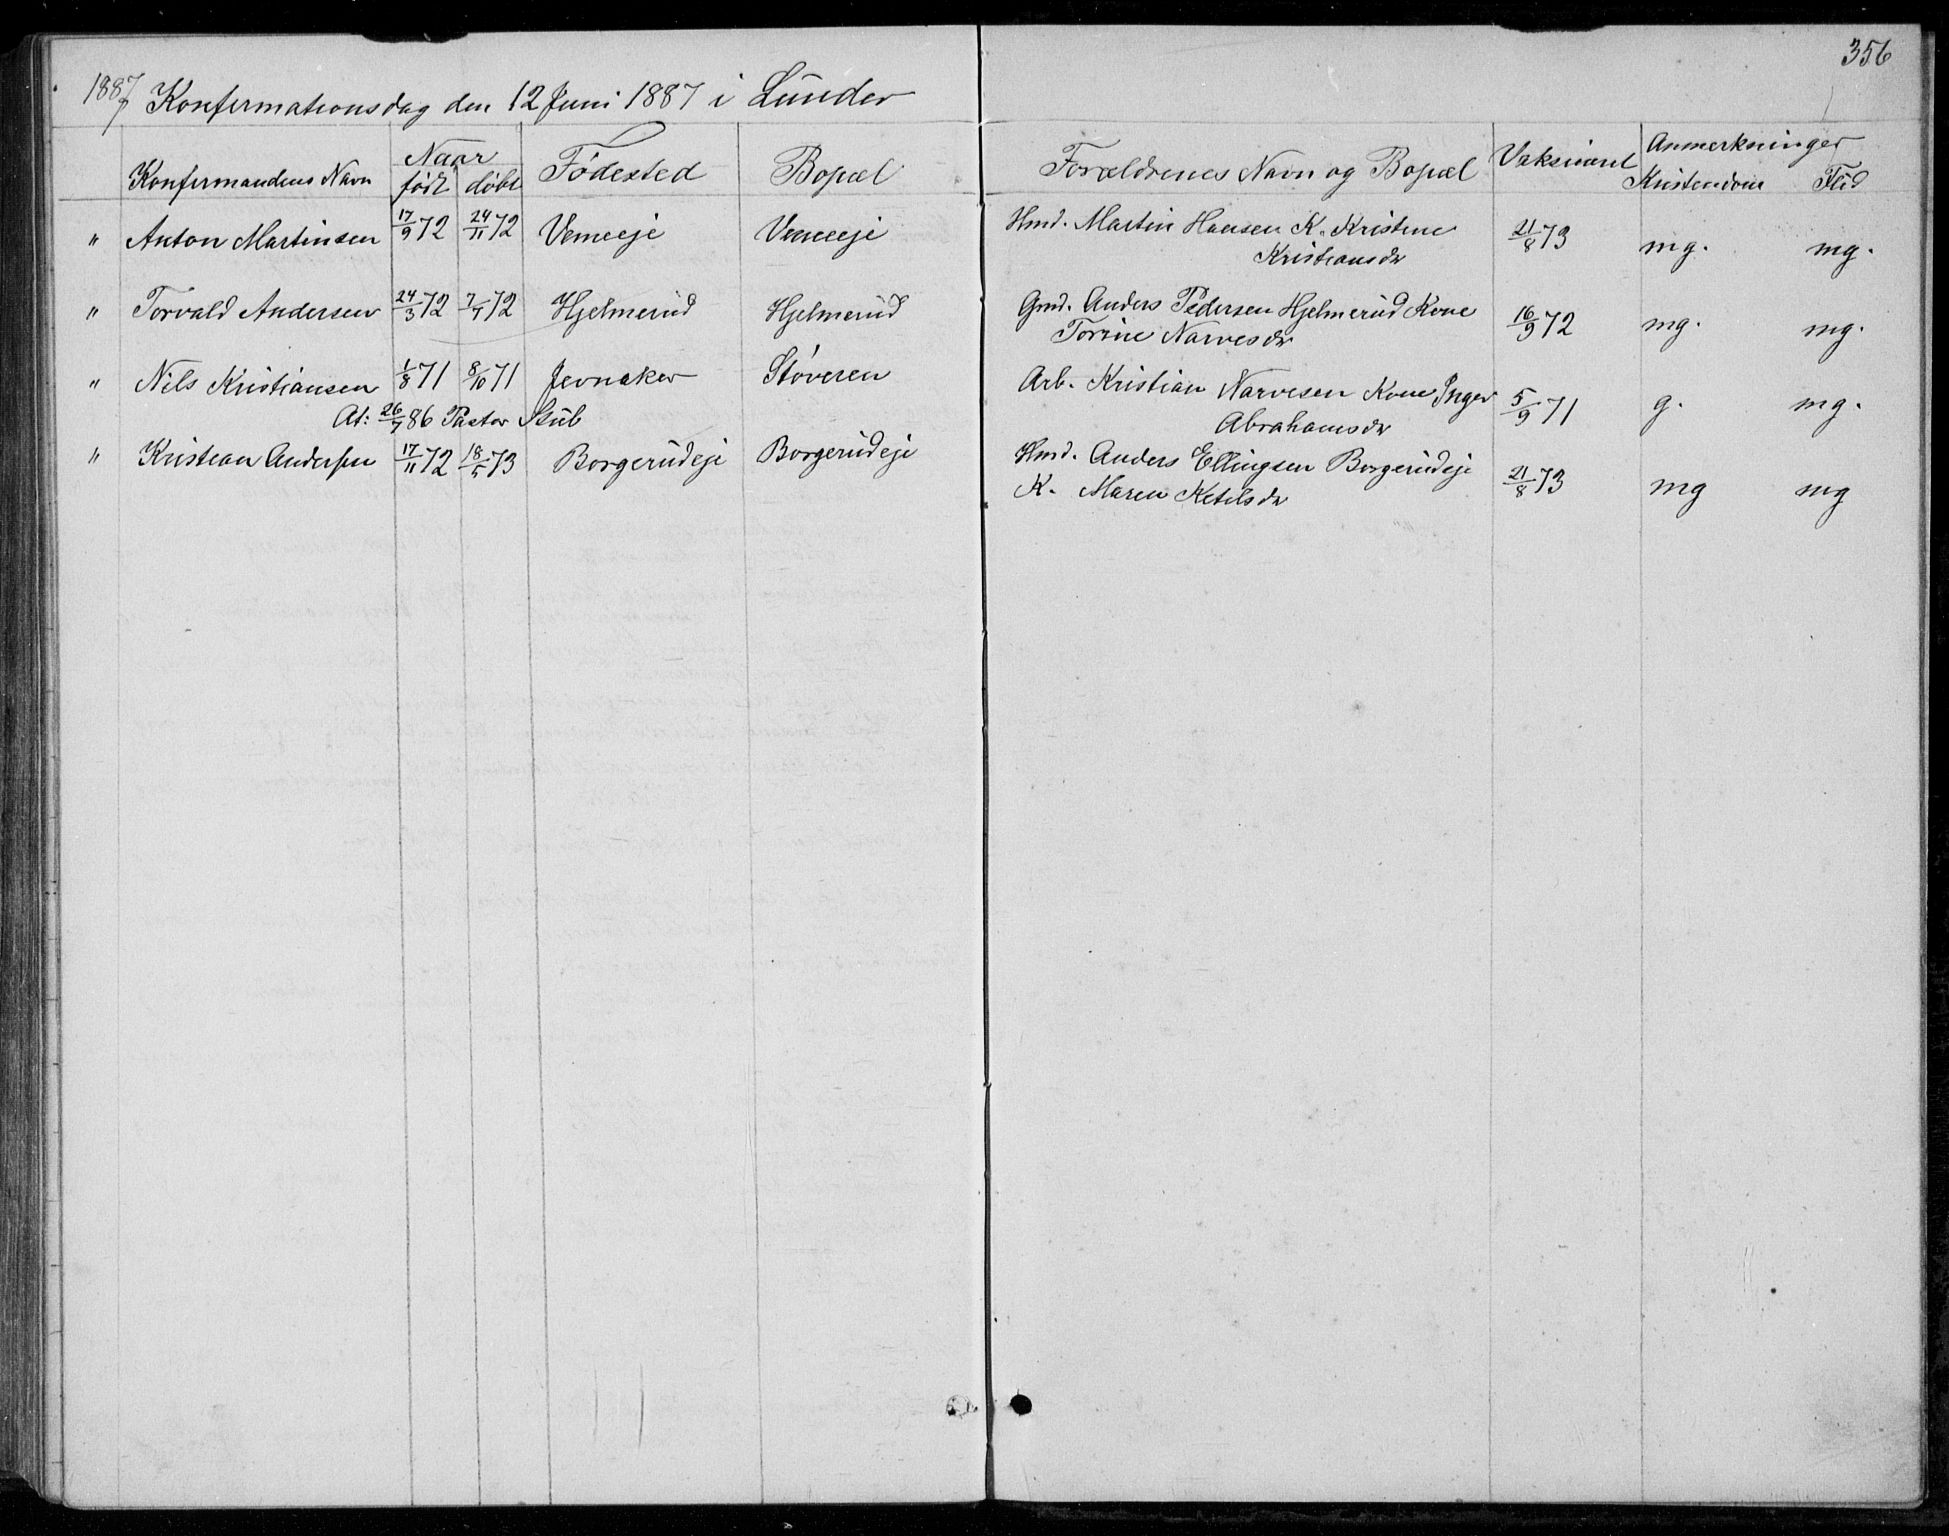 356
1887 Konfirmationsdag den 12 Juni 1887 i Lunder
Konfirmandens Navn Naar født døbt Fødested Bopæl Forældrenes Navn og Bopæl Vaksineret Anmerkninger Kristendom Flid
" Anton Martinsen 17/9 72 24/11 72 Vemeeje Vemeeje Hmd. Martin Hansen K. Kristine 21/8 73 mg. mg.
Kristiansdr
" Torvald Andersen 24/3 72 7/7 72 Hjelmerud Hjelmerud Gmd. Anders Pedersen Hjelmerud Kone 16/9 72 mg. mg.
Torine Narvesdr
" Nils Kristiansen 1/8 71 8/10 71 Jevnaker Støveren Arb. Kristian Narvesen Kone Inger 5/9 71 g. mg.
At: 26/7 86 Pastor Stub Abrahamsdr
" Kristian Andersen 17/11 72 18/5 73 Borgerudeje Borgerudeje Hmd. Anders Ellingsen Borgerudeje 21/8 73 mg mg
K. Maren Ketilsdr